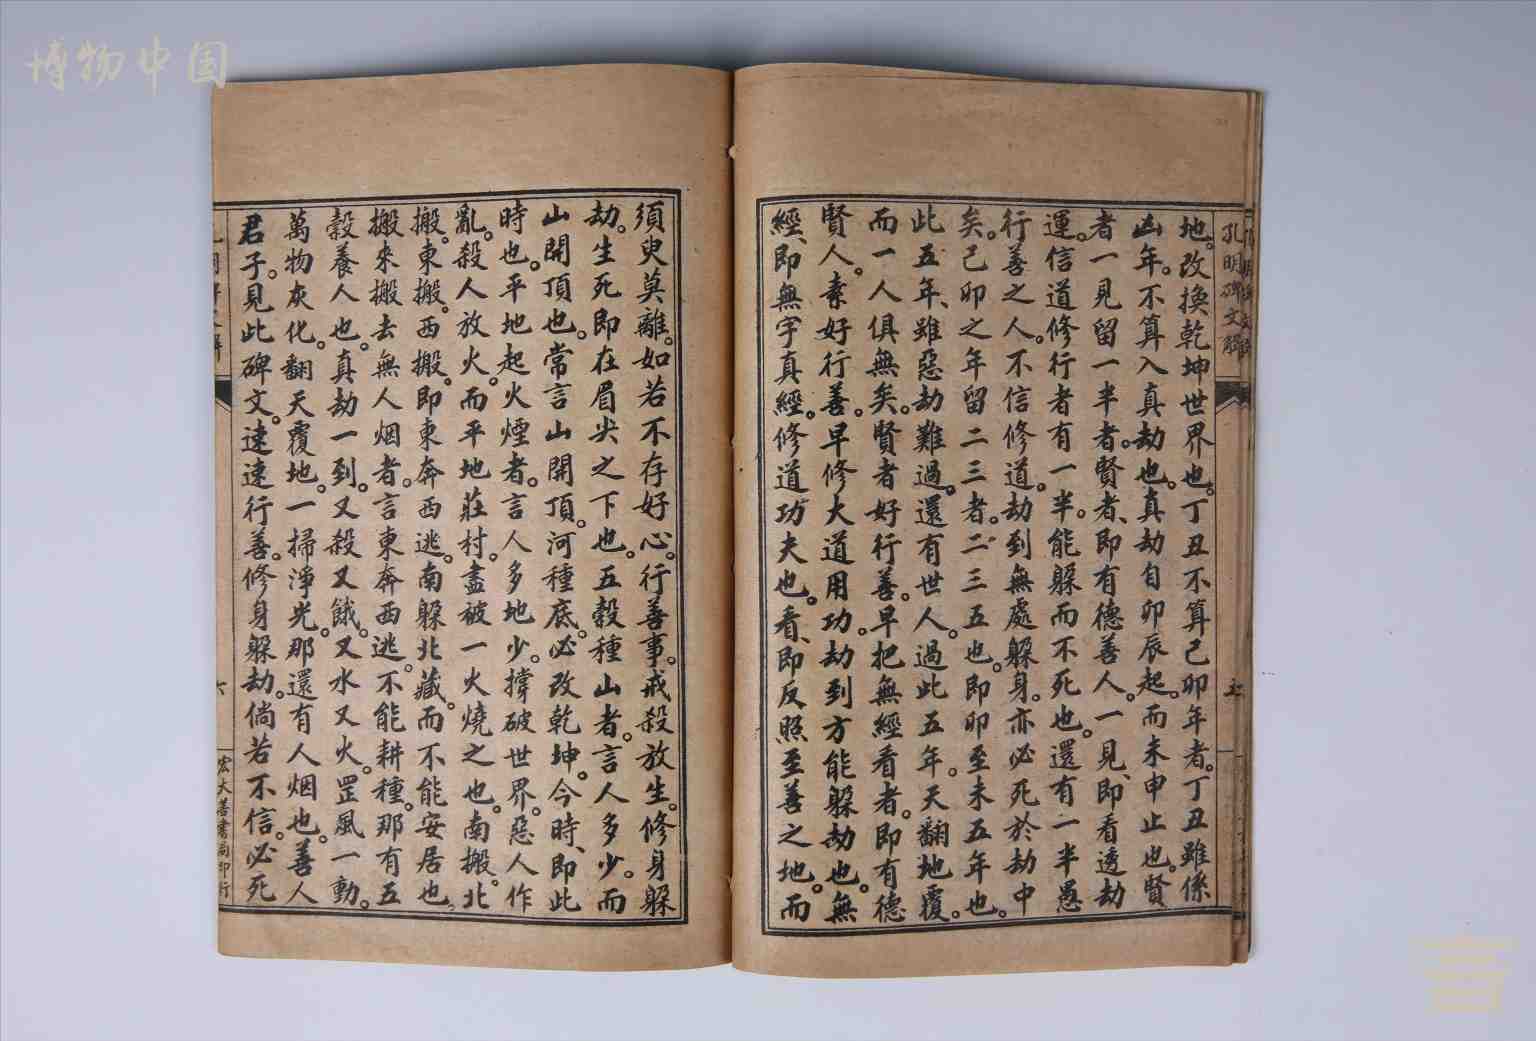 博物中国
孔明碑文解
地。改換乾坤世界也。丁丑不算己卯年者。丁丑雖係
凶年。不算入真劫也。真劫自卯辰起。而未申止也。賢
者一見留一半者。賢者、即有德善人。一見、即看透劫
運。信道修行者有一半。能躲而不死也。還有一半愚
行善之人。不信修道。劫到無處躲身。亦必死於劫中
矣。己卯之年留二三者。二三五也。即卯至未五年也。
此五年、雖惡劫難過。還有世人。過此五年。天翻地覆。
而一人俱無矣。賢者好行善。早把無經看者。即有德
賢人。素好行善。早修大道用功。劫到方能躲劫也。無
經、即無字真經。修道功夫也。看、即反照至善之地。而
須臾莫離。如若不存好心。行善事。戒殺放生。修身躲
劫。生死即在眉尖之下也。五穀種山者。言人多少。而
山開頂也。常言山開頂。河種底。必改乾坤。今時、即此
時也。平地起火煙者。言人多地少。撐破世界。惡人作
亂。殺人放火。而平地莊村。盡被一火燒之也。南搬。北
搬。東搬。西搬。即東奔西逃。南躲北藏。而不能安居也。
搬來搬去無人烟者。言東奔西逃。不能耕種。那有五
穀養人也。真劫一到。又殺又餓。又水又火。罡風一動。
萬物灰化。翻天覆地。一掃淨光。那還有人烟也。善人
君子。見此碑文。速速行善。修身躲劫。倘若不信。必死
六
宏大善書局印行